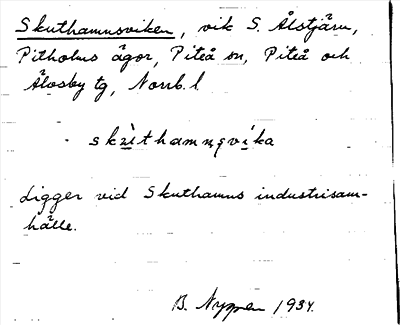 Skuthamnsviken, vik S. Ålstjärn,
Pitholms ägor, Piteå sn, Piteå och
Älvsby tg, Norrb. l
skùthamnsvíka
Ligger vid Skuthamns industrisam-
hälle.
B. Nyman 1934.